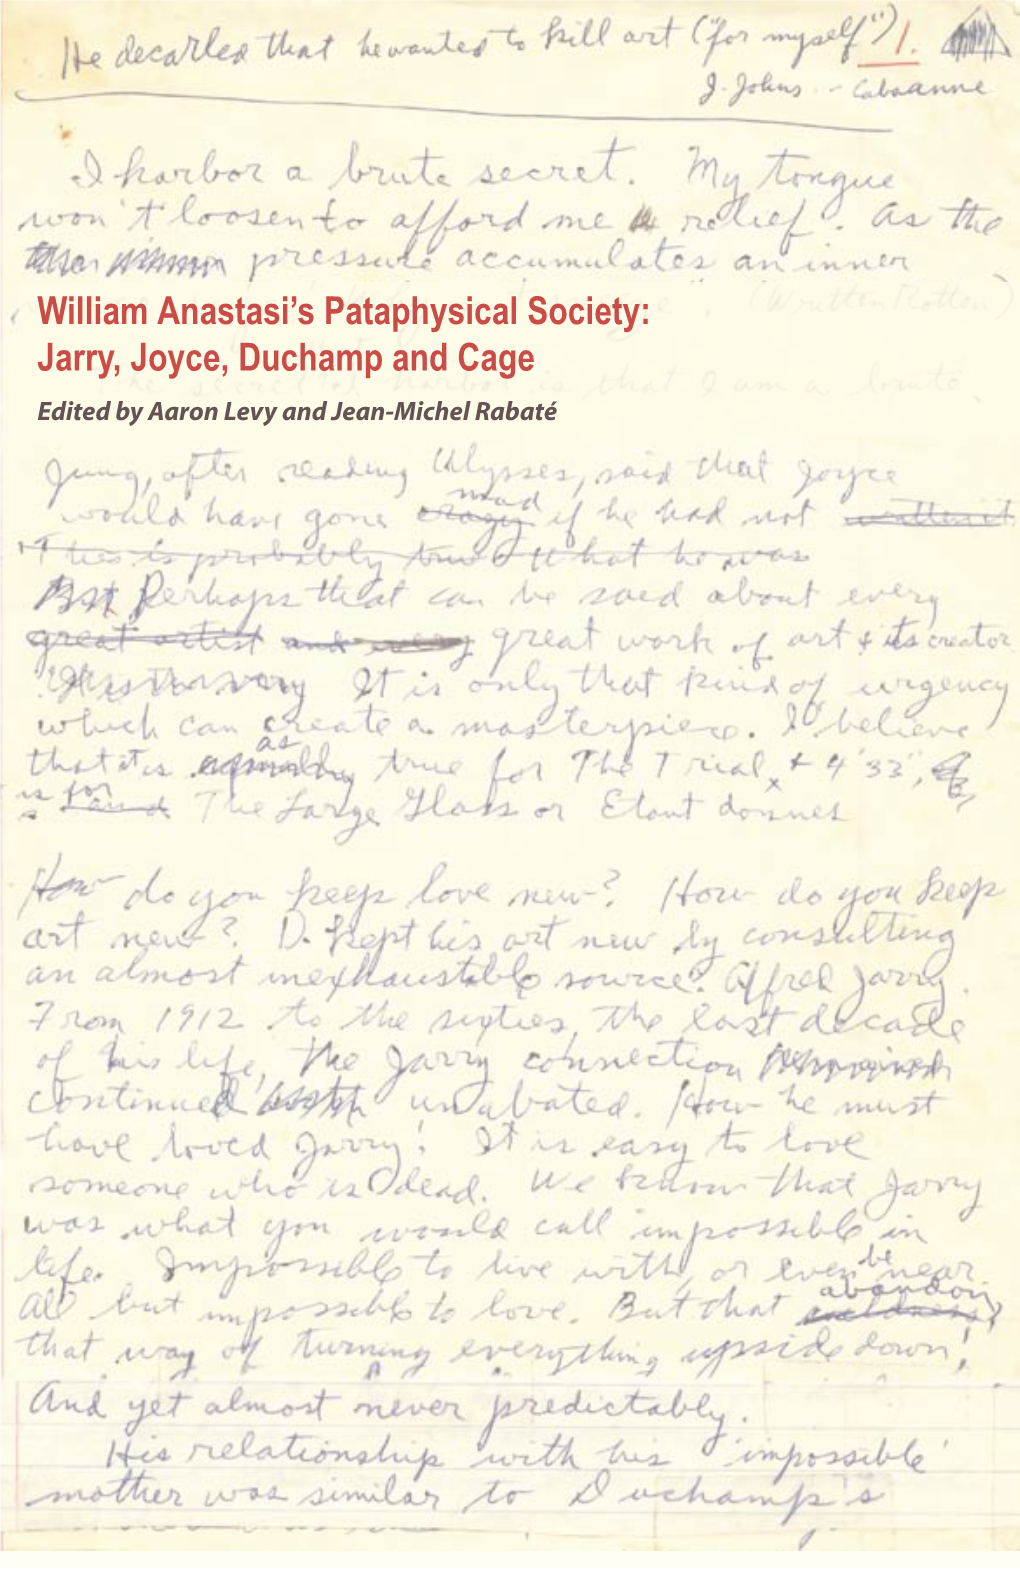 He decarled that he wanted to kill art ("for myself") 1.
J. Johns - Cabaanne
I harbor a brute secret. My tongue
won't loosen to afford me relief. As the
pressure accumulates an inner
(Written Rotten)
William Anastasi's Pataphysical Society:
Jarry, Joyce, Duchamp and Cage
the secret I harbor is that I am a brute.
Edited by Aaron Levy and Jean-Michel Rabaté
Jung, after reading Ulysses, said that Joyce
mad
would have gone crazy if he had not written it
This is probably true What he was
But Perhaps that can be said about every
great artist and every great work of art & its creator
It is only that kind of urgency
which can create a masterpiece. I believe
as
that it is equally true for The Trial, & 4'33",
is for and The Large Glass or Etant donnes
How do you keep love new? How do you keep
art new? D. kept his art new by consulting
an almost inexhaustible source: Alfred Jarry.
From 1912 to the sixties, the last decade
of his life, the Jarry connection remained
continued unabated. How he must
have loved Jarry! It is easy to love
someone who is dead. We know that Jarry
was what you would call impossible in
life. Impossible to live with, or even be near
abandon,
All but impossible to love. But that
that way of turning everything upside down!
And yet almost never predictably.
His relationship with his 'impossible'
mother was similar to Duchamp's